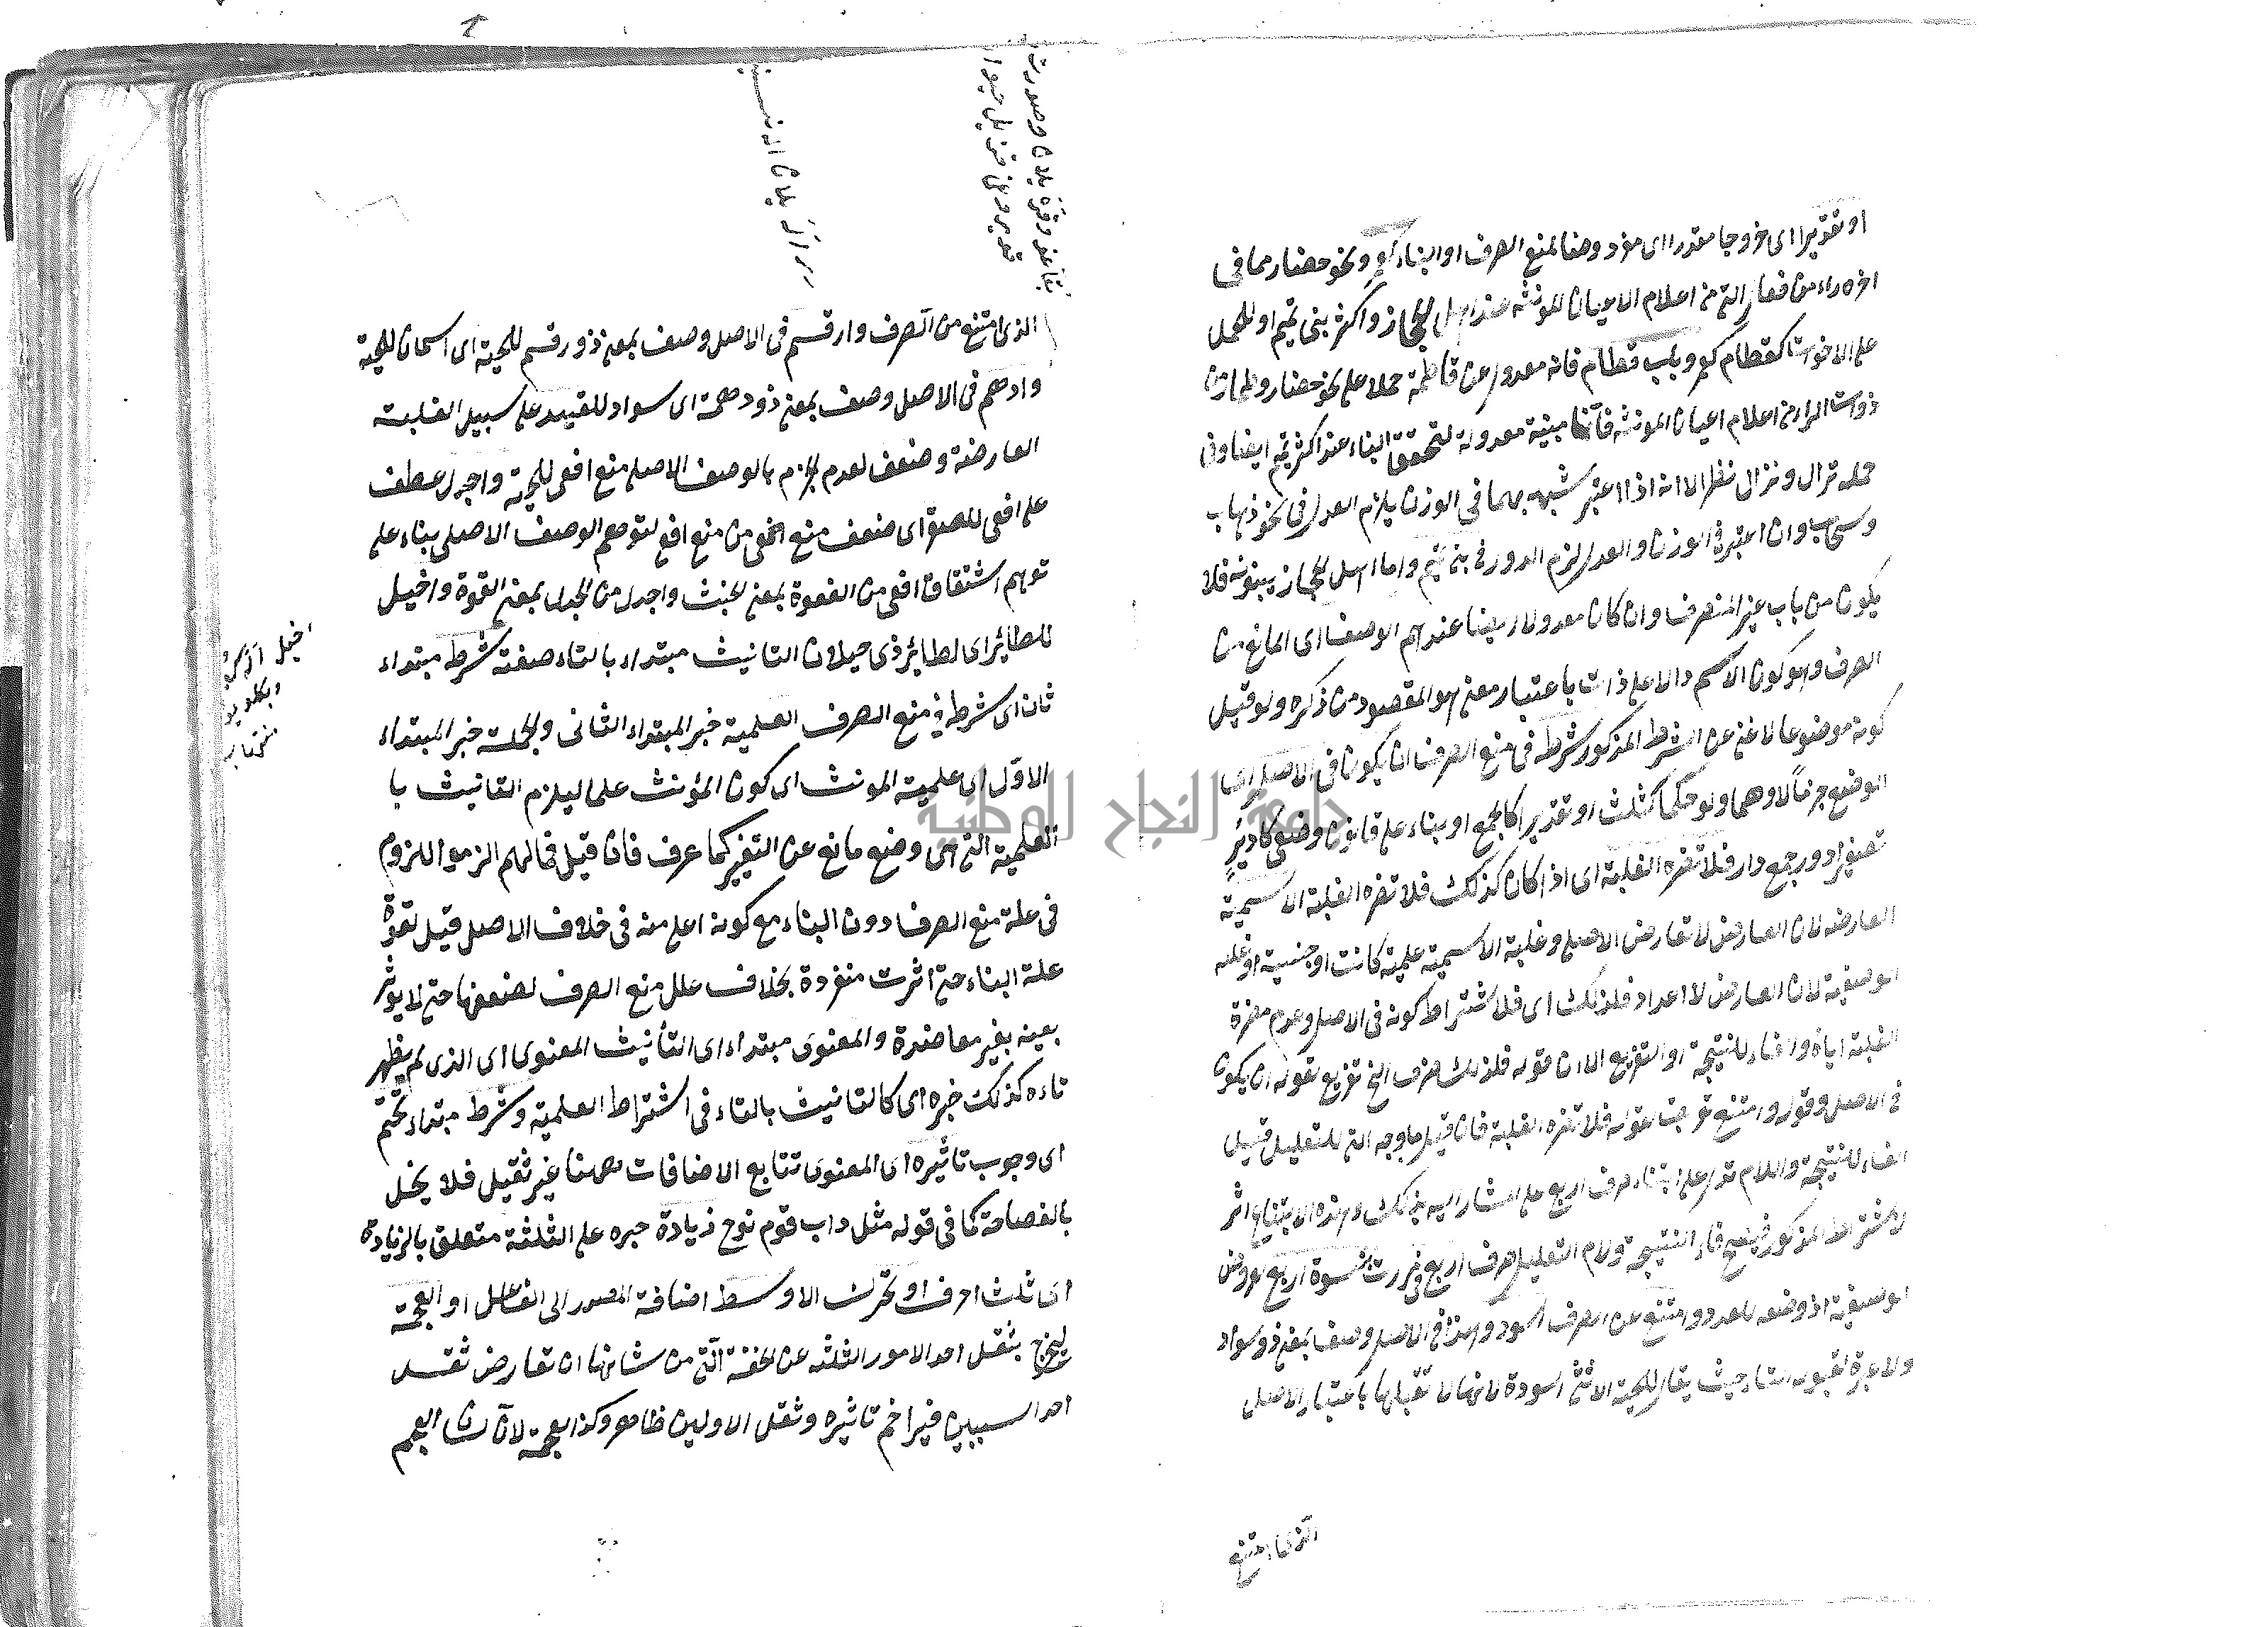 او تقديرا اى خروجا مقدرا اى مؤد وضا لمنع الصرف او البناء كعمر ونحو حضار مما فى
اخره راء من فعال التى من اعلام الاعيان المونثة عند اهل الحجاز واكثر بنى تميم او للحمل
على الاخوات كقطام كعمر وباب قطام فانه معدول عن قاطمة حملا على نحو حضار وطمار من
ذوات الراء من اعلام اعيان المونثة فانها مبنية معدولة لتحقق البناء عند اكثر تميم ايضا وفى
حمله نزال ونزال نظر الا انه اذا اعتبر شبهه بهما فى الوزن يلزم العدل فى نحو ذهاب
وسحاب وان اعتبر فى الوزن والعدل لزم الدور فى بنى تميم واما اهل الحجاز يبنونه فلا
يكون من باب غير المنصرف وان كان معدولا مبينا عندهم الوصف اى المانع من
الصرف وهو كون الاسم دالا على ذات باعتبار معنى هو المقصود من ذكره ولو قيل
كونه موضوعا لاغنى عن الشرط المذكور شرطه فى منع الصرف ان يكون فى الاصل اى
الوضع جزما لا وهما ولو حكما كثلث او تقديرا كالجمع او بناء على قانون وضعى كاديئر
تصغير ادور جمع دار فلا تضره الغلبة اى اذا كان كذلك فلا تضره الغلبة الاسمية
العارضه لان العارض لا تعارض الاصل وغلبة الاسمية علمية كانت او جنسية او غلبه
الوصفية لان العارض لا اعداد فلذلك اى فلاشتراط كونه فى الاصل وعدم مضرة
الغلبة اياه والفاء للنتيجة او التفريع الا ان قوله فلذلك صرف الخ تفريع لقوله ان يكون
فى الاصل وقوله وامتنع تفريع لقوله فلا تضره الغلبة فان قيل ما وجه التى للتعليل قيل
الفاء للنتيجة واللام تدل على ابتناء صرف اربع على المشار اليه بذلك وهذه الابتناء اثر
لاشتراط المذكور فيصح فاء النتيجة ولام التعليل صرف اربع فى مررت بنسوة اربع لعروض
الوصفية اذ وضعه للعدد وامتنع عن الصرف اسود وهذا فى الاصل وصف بمعنى ذو سواد
ولا عبرة لقبوله التاء حيث يقال للحية الانثى اسودة لانها لا تقبلها باعتبار الاصل
الذى امتنع
الذى امتنع من الصرف وارقم فى الاصل وصف بمعنى ذو رقم للحية اى اسمان للحية
وادهم فى الاصل وصف بمعنى ذو دهمة اى سواد للقيد على سبيل الغلبة
العارضة وضعف لعدم الجزم بالوصف الاصلى منع افعى للحية واجدل عطف
على افعى للصقر اى ضعف منع اخفى من منع افعى لتوهم الوصف الاصلى بناء على
توهم اشتقاق افعى من الفعوة بمعنى الخبث واجدل من الجدل بمعنى القوة واخيل
للطائر اى لطائر ذى خيلان التانيث مبتداء بالتاء صفته شرطه مبتداء
ثان اى شرطه فى منع الصرف العلمية خبر المبتداء الثانى والجملة خبر المبتداء
الاول اى علمية المونث اى كون المؤنث علما ليلزم التانيث با
العلمية التى هى وضع مانع عن التغير كما عرف فان قيل فما لهم الزموا اللزوم
فى علة منع الصرف دون البناء مع كونه اعلى منه فى خلاف الاصل قيل لقوة
علة البناء حتى اثرت منفردة بخلاف علل منع الصرف لضعفها حتى لا يوثر
بعينه بغير معاضدة والمعنوى مبتداء اى التأنيث المعنوى اى الذى لم يظهر
تاءه كذلك خبره اى كالتانيث بالتاء فى اشتراط العلمية وشرط مبتداء تحتم
اى وجوب تاثيره اى المعنوى تتابع الاضافات ههنا غير ثقيل فلا يخل
بالفصاحة كما فى قوله مثل داب قوم نوح زيادة خبره على الثلثة متعلق بالزيادة
اى ثلث احرف او تحرك الاوسط اضافة المصدر الى الفاعل او العجمة
ليخرج بثقل احد الامور الثلثة عن الخفة التى من شانها ان تعارض ثقل
احد السببين فيزاحم تاثيره وثقل الاولين ظاهر وكذا العجمة لان لسان العجم
اخيل
جامعة النجاح الوطنية